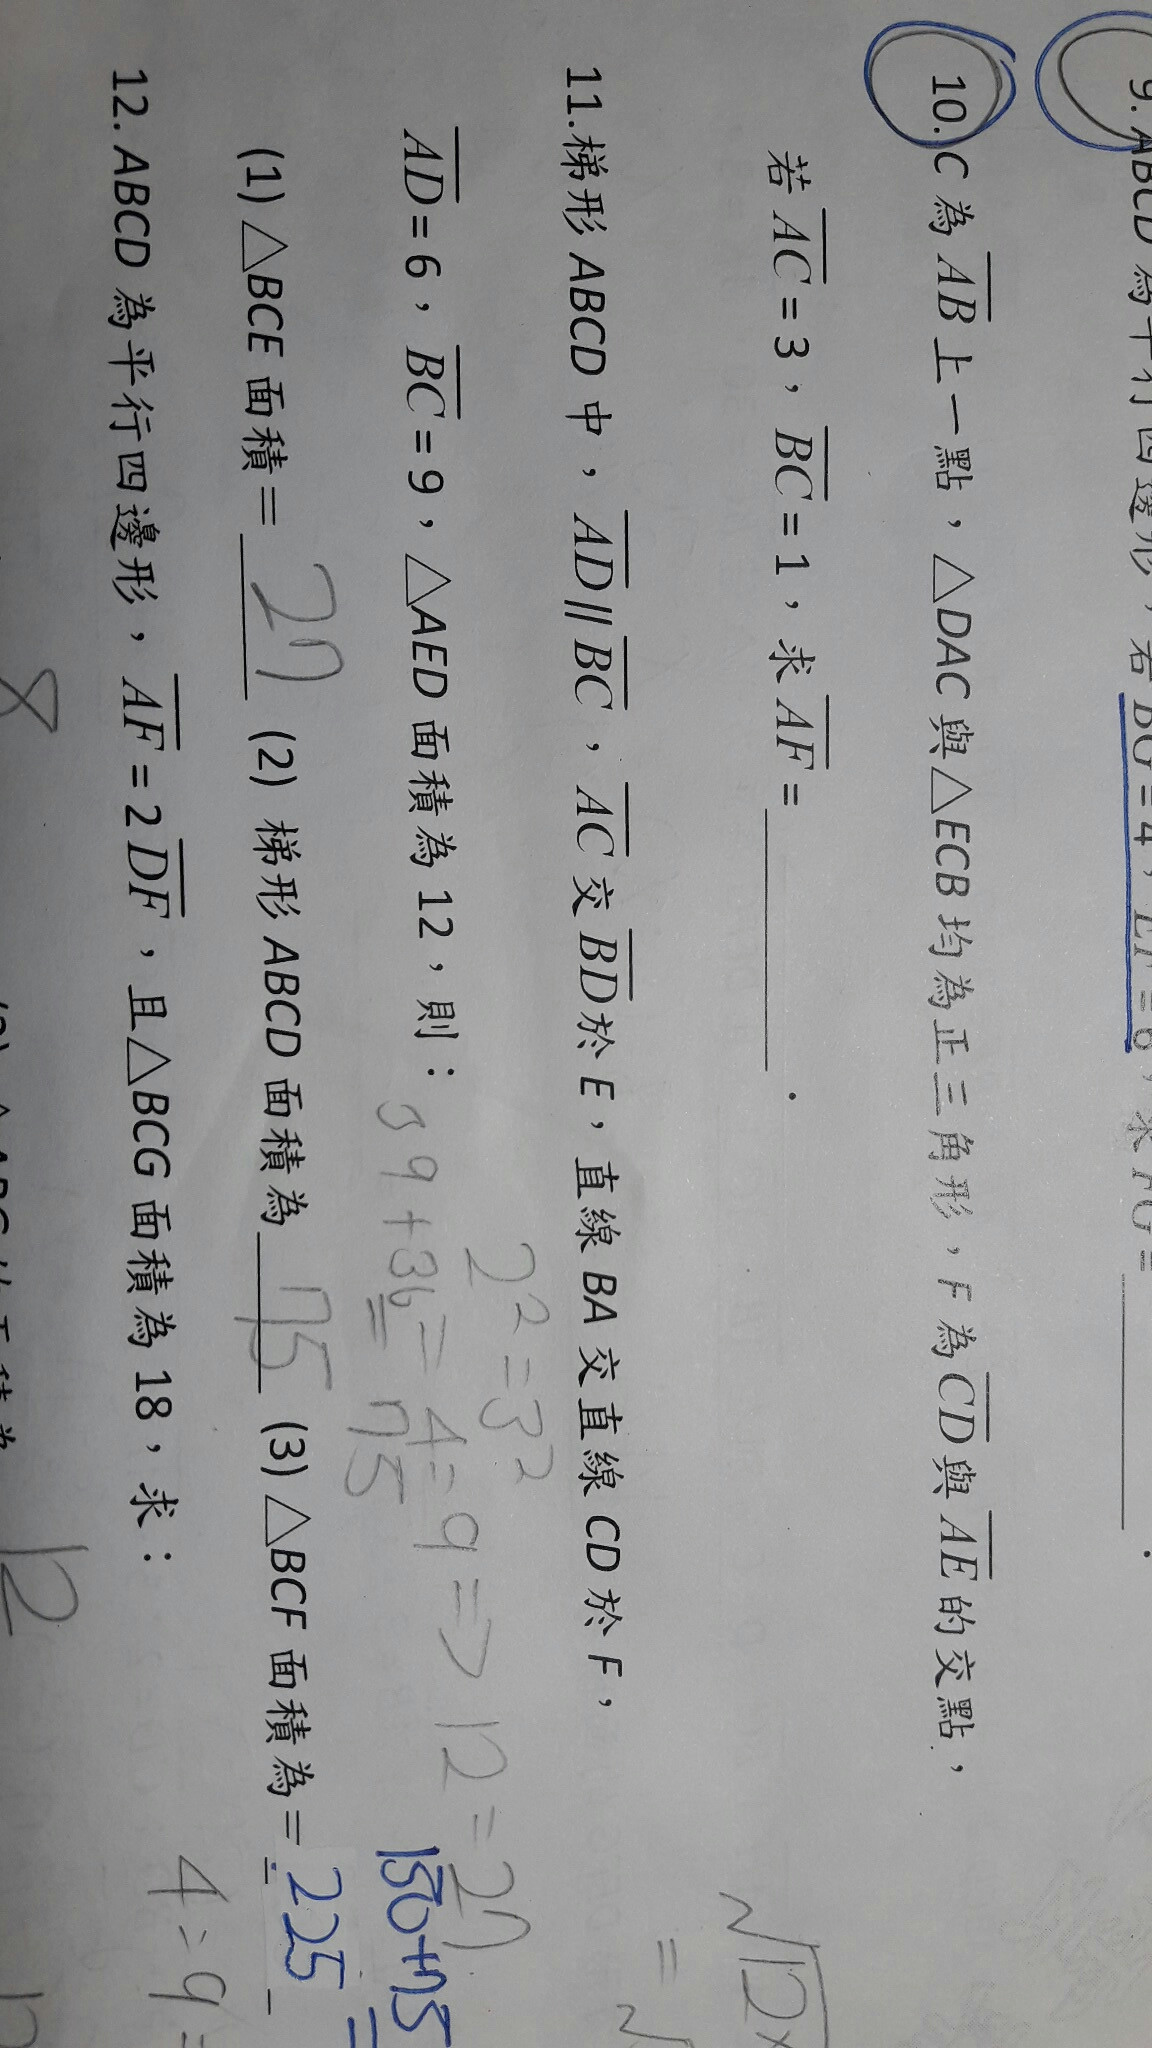 9. ABCD 為平行四邊形，若 BG = 4，EF = 6，求 FG =
10. C 為 AB 上一點，△DAC 與△ECB 均為正三角形，F 為 CD 與 AE 的交點，
若 AC = 3，BC = 1，求 AF = ______．
√12×
= √
11.梯形 ABCD 中，AD // BC，AC 交 BD 於 E，直線 BA 交直線 CD 於 F，
2² = 3²
AD = 6，BC = 9，△AED 面積為 12，則：
4 = 9 => 12 = 27
39+36 = 75
150+75
(1) △BCE 面積＝ 27 (2) 梯形 ABCD 面積為 75 (3) △BCF 面積為＝ 225
4 : 9 =
12. ABCD 為平行四邊形，AF = 2DF，且△BCG 面積為 18，求：
8
12